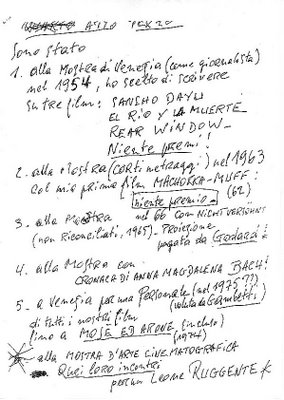 ATTO TERZO
Sono stato
1. alla Mostra di Venezia (come giornalista)
nel 1954, ho scelto di scrivere
su tre film: SANSHO DAYU
EL RIO Y LA MUERTE
REAR WINDOW
Niente premi!!
2. alla Mostra (cortimetraggi) nel 1963
col mio primo film MACHORKA-MUFF:
niente premio. (62)
3. alla Mostra nel 66 con NICHT VERSÖHNT
(non Riconciliati, 1965). Proiezione
pagata da Godard!
4. alla Mostra con
CRONACA DI ANNA MAGDALENA BACH!
5. a Venezia per una Personale (nel 1975??)
di tutti i nostri film (voluta da Gambetti)
fino a MOSE ED ARONE (incluso)
(1974)
alla MOSTRA D'ARTE CINEMATOGRAFICA
Quei loro incontri
per un Leone RUGGENTE